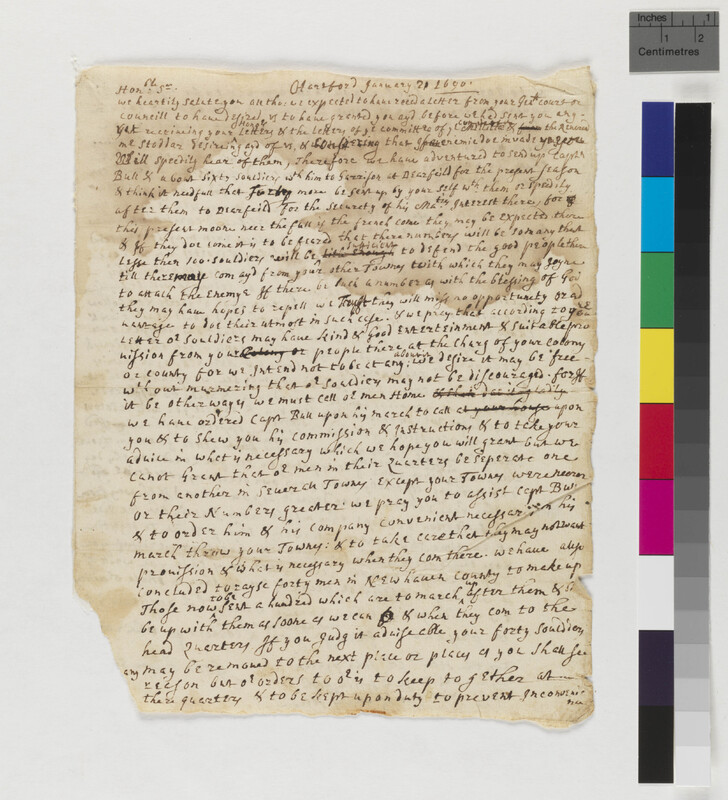 Inches 1
1 2
Centimetres
Honrd Sr Hartford January 21 1690:
we heartily salute you all tho: we expected to have received a letter from your Genll court or
councill to have desired us to have granted you ayd before we had sent you any
yet receiveing your Honors Letters & the letters of ye committee of ye & the Reverend
mr Stodlar desireing ayd of us, & that enemie doe invade
Will speedily hear of them, Therefore we have adventured to send up Capt
Bull & about Sixty souldiers wth him to Garrison at Dearfeild for the present season
& think it needfull that more be sent up by your self wth them or speedily
after them to Dearfeild for the security of his Matys Interest there, for
this present moone near the full is the french come they may be expected there
& If they doe come it is to be feared that there numbers will be so many that
Lesse then 100 souldiers will be sufficient to defend the good people there
till there com ayd from your other Townes with which they may joyne
to attack the Enemye If there be such a number as with the blessing of God
they may have hopes to repell we Trust they will miss no opportunity or ad
vantage to doe their utmost in such case. & we pray that according to your
Letter or souldiers may have kind & Good Entertainment & suitable pro
vission from your Colony or people there at the Charg of your Colony
or county for we Intend not to be at any: we desire it may be free
wth out murmering that or souldiers may not be discouraged: for If
it be other ways we must call or men Home
we have ordered Capt Bull upon his march to call at your house upon
you & to shew you his commission & Instructions & to take your
advice in what is necessary which we hope you will grant but we
canot Grant that or men in their Quarters be seperate one
from another in severall Townes Except your Townes were nearer
or their Numbers greater: we pray you to assist Capt Bull
& to order him & his company convenient necessaries in his
march throw your Townes: & to take care that they may not want
provission & what is necessary when they com there. we have also
concluded to rayse forty men in Newhaven County to make up
Those now sent to be a hundred which are to march after them &
be up with them as soone as we can & when they com to the
head Quarters If you Judg it adviseable your forty souldiers
may be removed to the next place or places as you shall see
any reason but or orders to ors is to keep together at
there quarters & to be kept upon duty to prevent Inconvenie
nce